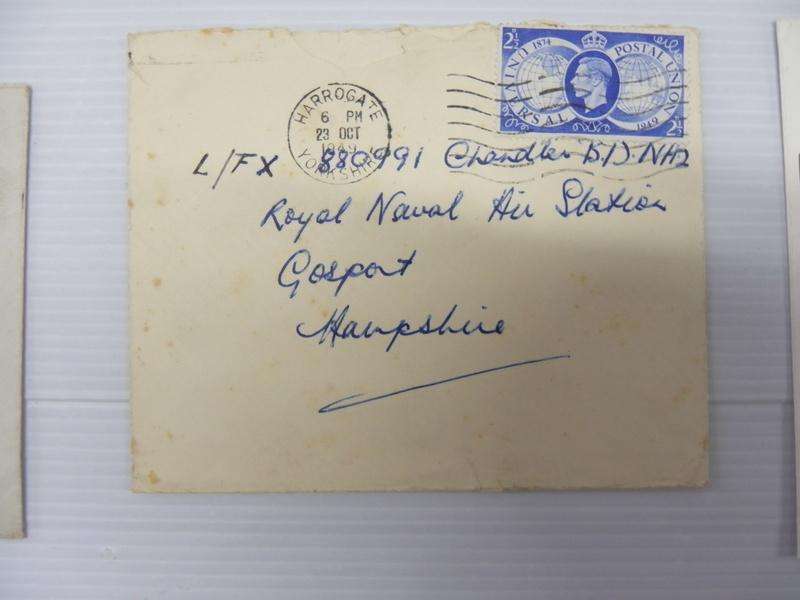 2½ 1874 POSTAL UNION
UNIVERSAL 1949 2½
HARROGATE
6 PM
23 OCT
1949
YORKSHIRE
L/FX 880991 Chandler B.D. NA2
Royal Naval Air Station
Gosport
Hampshire